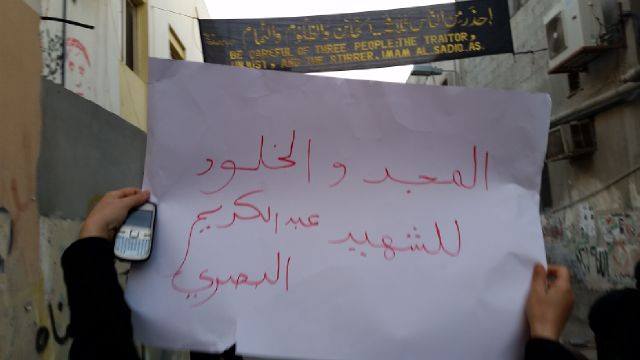 إحذر من الناس ثلاثة الخائن والظلوم والنمام
BE CAREFUL OF THREE PEOPLE: THE TRAITOR,
UNJUST, AND THE STIRRER. IMAM AL SADIQ.AS.
المجد و الخلود
للشهيد عبدالكريم
البصري